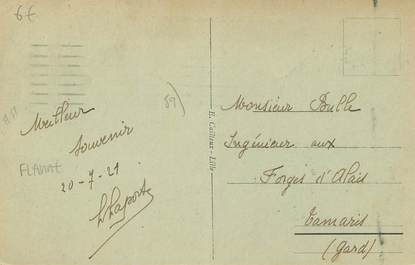 6€
59)
Meilleur
souvenir
20-7-21
L Laporte
E. Cailteux - Lille
Monsieur Bulle
Ingénieur aux
Forges d'Alais
Tamaris
(Gard)